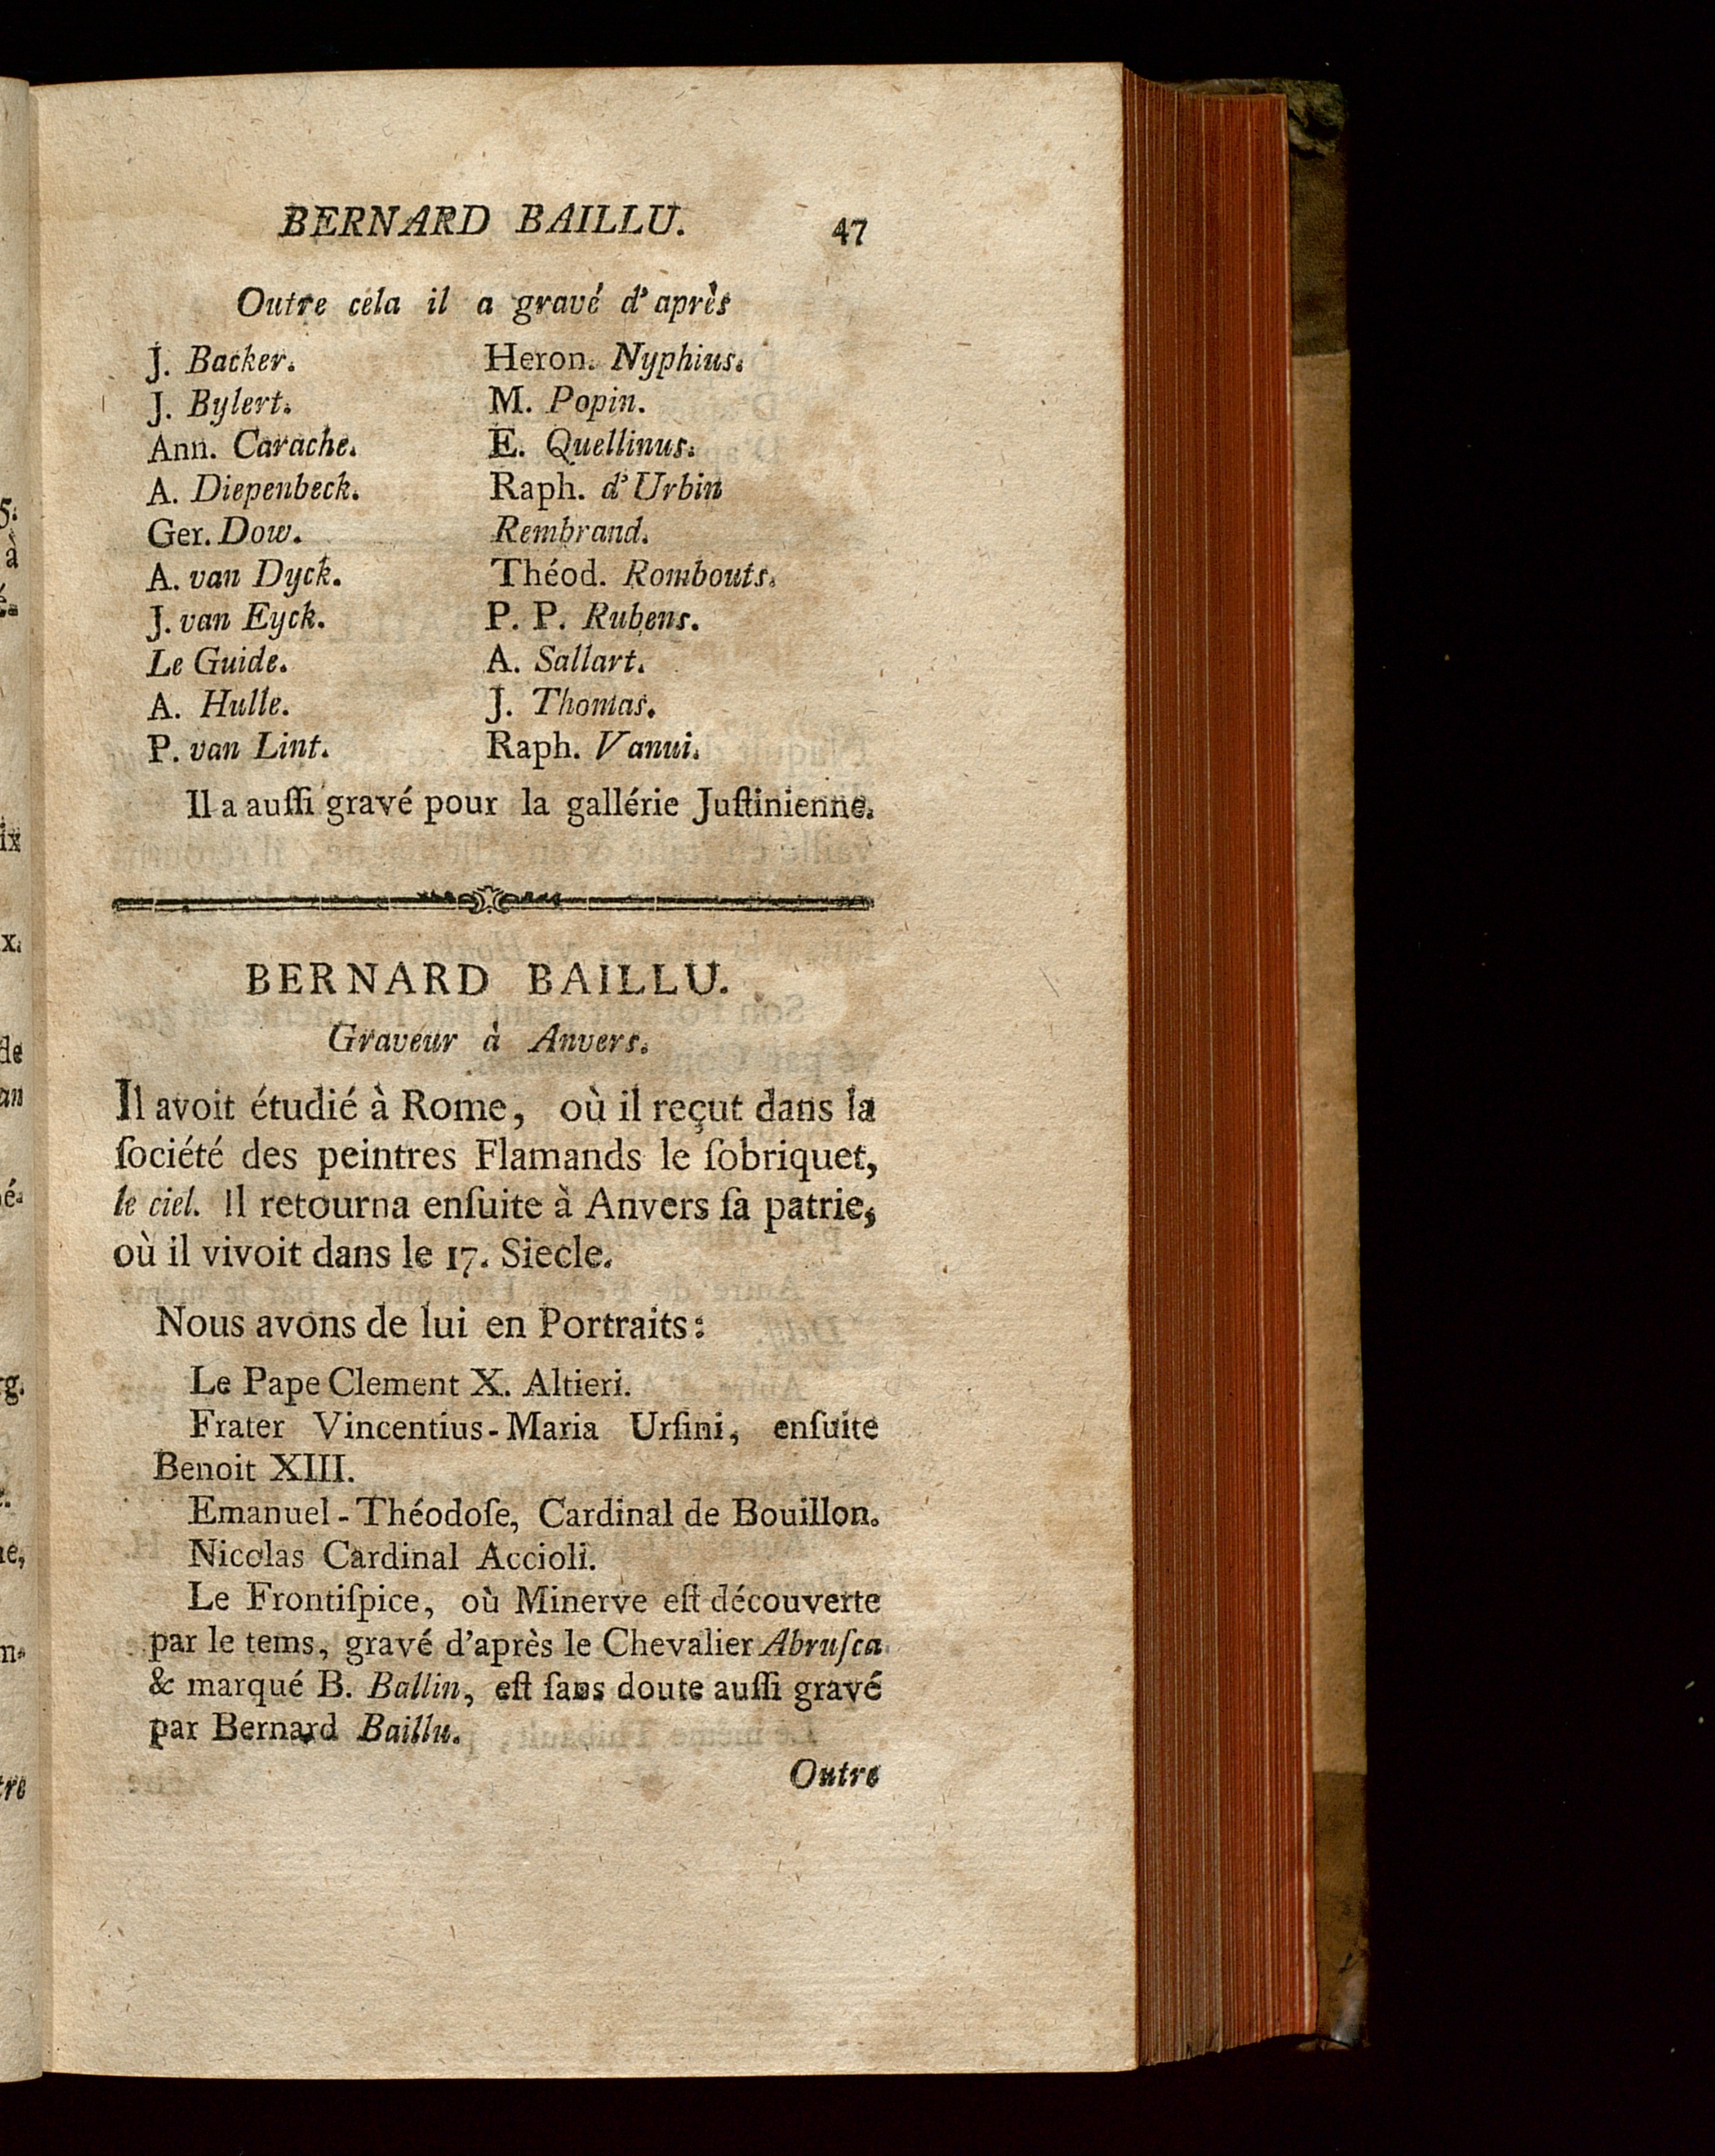 BERNARD BAILLU. 47
Outre cela il a gravé d'après
J. Backer.
J. Bylert.
Ann. Carache.
A. Diepenbeck.
Ger. Dow.
A. van Dyck.
J. van Eyck.
Le Guide.
A. Hulle.
P. van Lint.
Heron. Nyphius.
M. Popin.
E. Quellinus.
Raph. d'Urbin
Rembrand.
Théod. Rombouts.
P. P. Rubens.
A. Sallart.
J. Thomas.
Raph. Vanui.
Il a auſſi gravé pour la gallérie Juſtinienne.
BERNARD BAILLU.
Graveur à Anvers.
Il avoit étudié à Rome, où il reçut dans la
ſociété des peintres Flamands le ſobriquet,
le ciel. Il retourna enſuite à Anvers ſa patrie,
où il vivoit dans le 17. Siecle.
Nous avons de lui en Portraits:
Le Pape Clement X. Altieri.
Frater Vincentius-Maria Urſini, enſuite
Benoit XIII.
Emanuel-Théodoſe, Cardinal de Bouillon.
Nicolas Cardinal Accioli.
Le Frontiſpice, où Minerve eſt découverte
par le tems, gravé d'après le Chevalier Abruſca
& marqué B. Ballin, eſt ſans doute auſſi gravé
par Bernard Baillu.
Outre